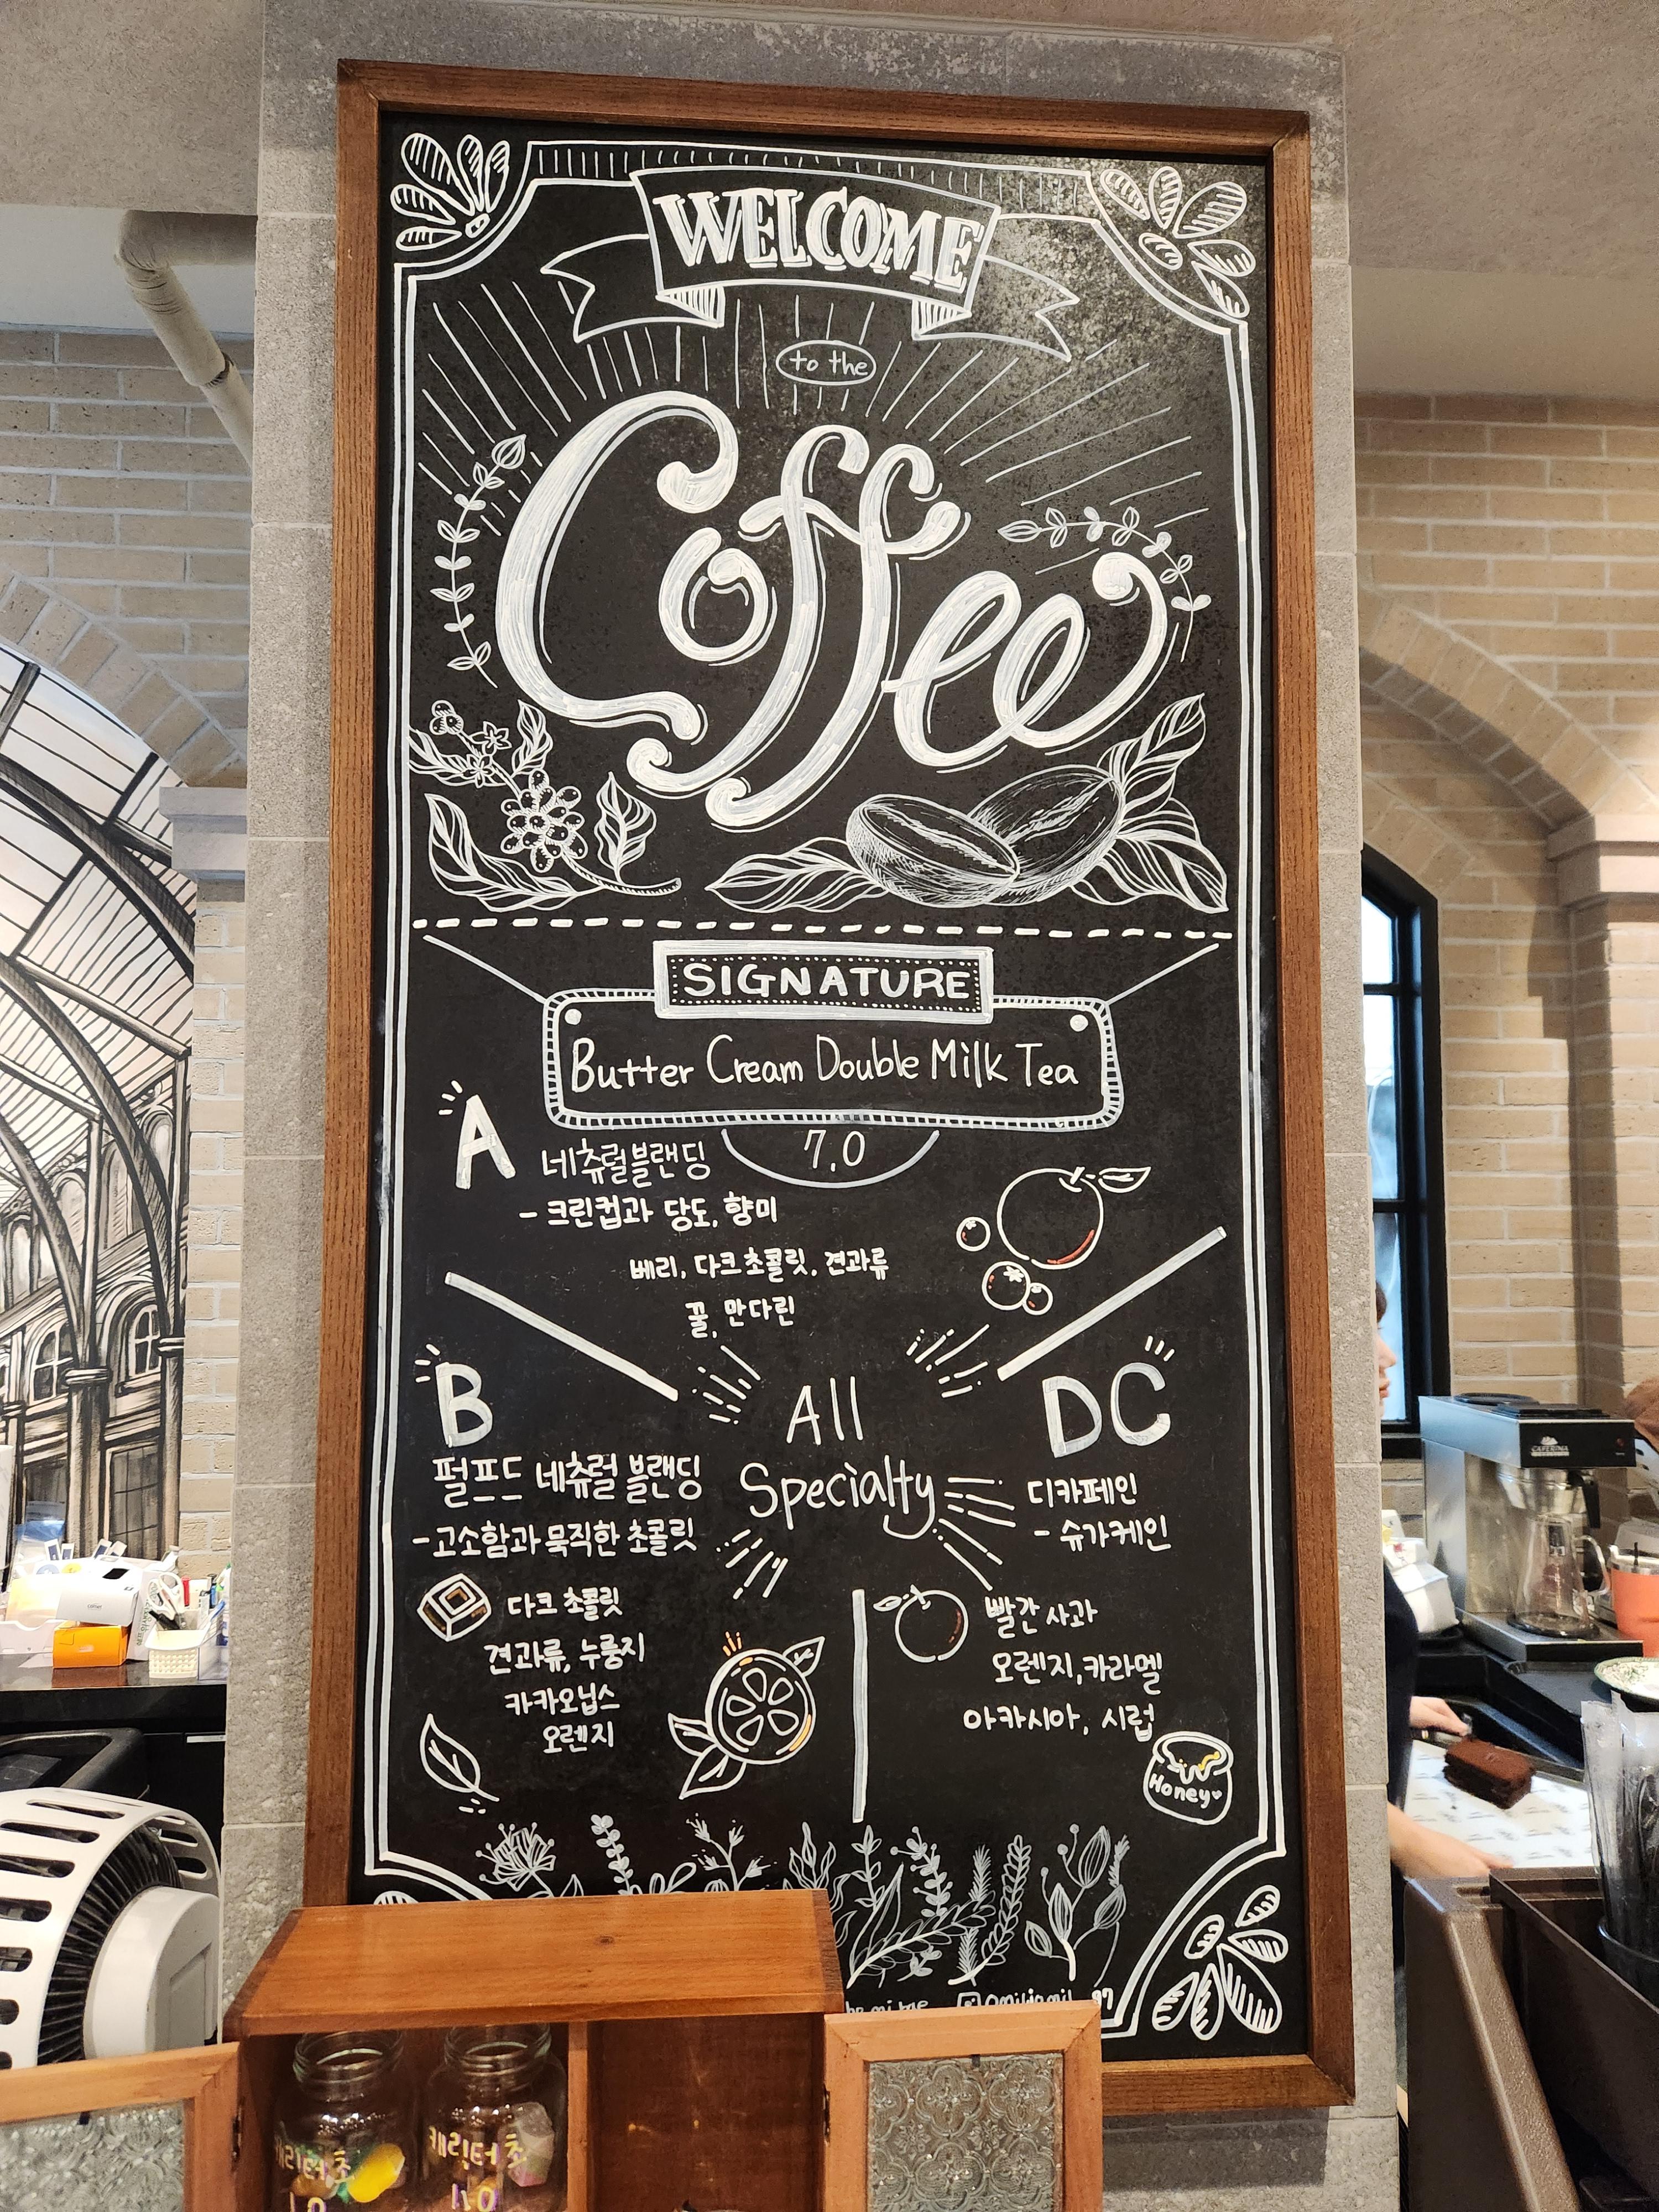 WELCOME
to the
Coffee
SIGNATURE
Butter Cream Double Milk Tea
7.0
A
네츄럴블랜딩
- 크린컵과 당도, 향미
베리, 다크초콜릿, 견과류
꿀, 만다린
All
Specialty
B
펄프드 네츄럴 블랜딩
- 고소함과 묵직한 초콜릿
다크 초콜릿
견과류, 누룽지
카카오닙스
오렌지
DC
디카페인
- 슈가케인
빨간 사과
오렌지, 카라멜
아카시아, 시럽
Honey
CAFERINA
캐릭터초
캐릭터초